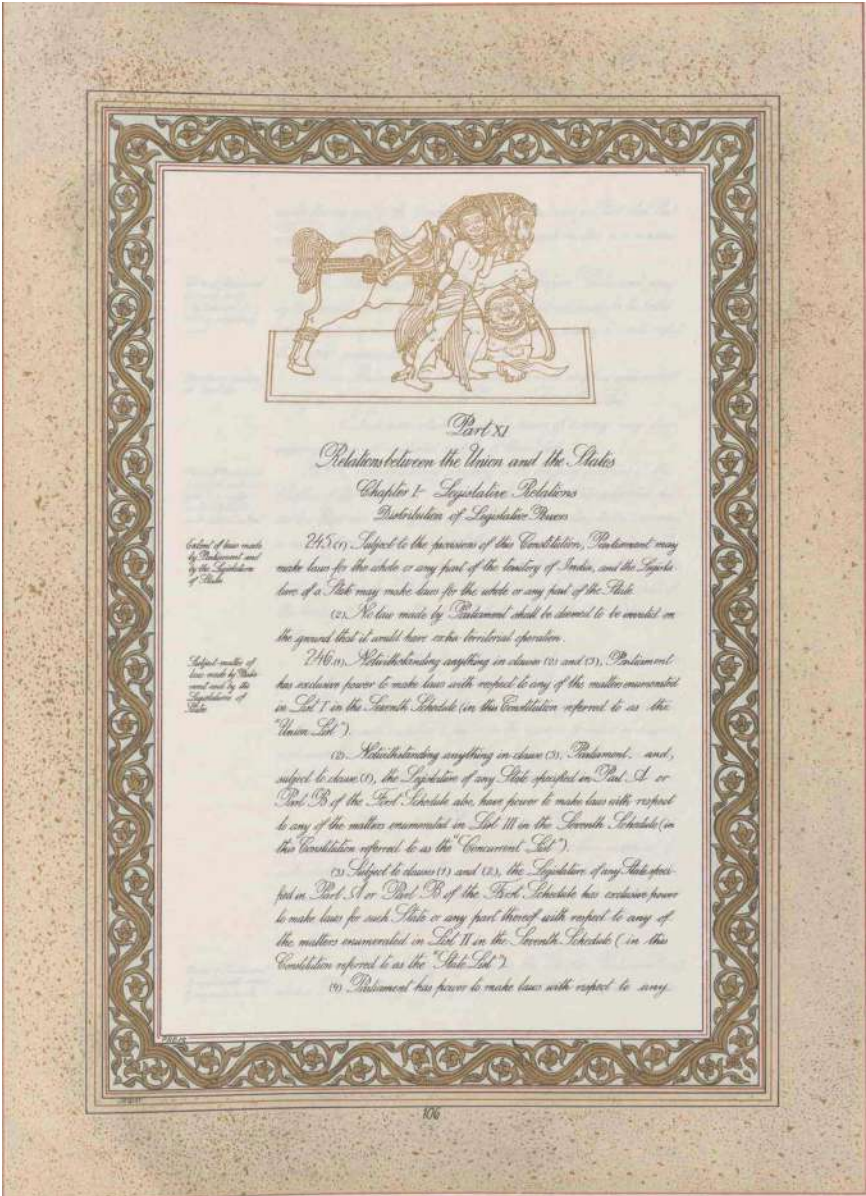 Part XI
Relations between the Union and the States
Chapter I - Legislative Relations
Distribution of Legislative Powers
Extent of laws made
by Parliament and
by the Legislatures
of States
245 (1) Subject to the provisions of this Constitution, Parliament may
make laws for the whole or any part of the territory of India, and the Legisla-
ture of a State may make laws for the whole or any part of the State.
(2). No law made by Parliament shall be deemed to be invalid on
the ground that it would have extra territorial operation.
Subject-matter of
laws made by Parlia-
ment and by the
Legislatures of
States
246 (1). Notwithstanding anything in clauses (2) and (3), Parliament
has exclusive power to make laws with respect to any of the matters enumerated
in List I in the Seventh Schedule (in this Constitution referred to as the
"Union List").
(2) Notwithstanding anything in clause (3), Parliament, and,
subject to clause (1), the Legislature of any State specified in Part A or
Part B of the First Schedule also, have power to make laws with respect
to any of the matters enumerated in List III in the Seventh Schedule (in
this Constitution referred to as the "Concurrent List").
(3) Subject to clauses (1) and (2), the Legislature of any State speci-
fied in Part A or Part B of the First Schedule has exclusive power
to make laws for such State or any part thereof with respect to any of
the matters enumerated in List II in the Seventh Schedule (in this
Constitution referred to as the "State List").
(4) Parliament has power to make laws with respect to any
106